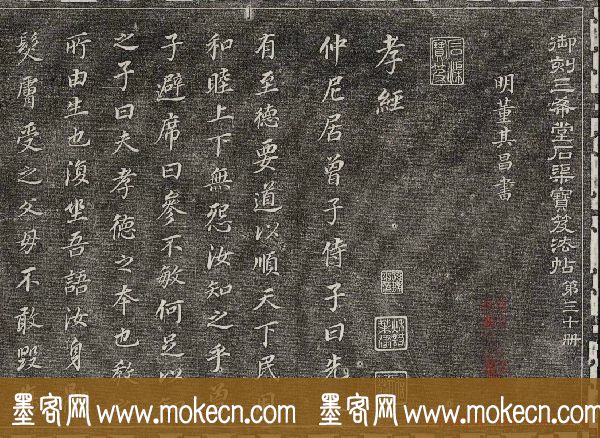 御刻三希堂石渠寶笈法帖 第三十册
明董其昌書
孝經
仲尼居曾子侍子曰先
有至德要道以順天下民用
和睦上下無怨汝知之乎曾
子避席曰參不敏何足以知
之子曰夫孝德之本也教
所由生也復坐吾語汝身
髮膚受之父母不敢毀
墨客网 www.mokecn.com 墨客网 www.mokecn.com